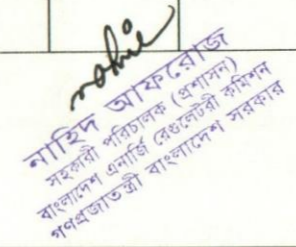 নাহিদ আফরোজ
সহকারী পরিচালক (প্রশাসন)
বাংলাদেশ এনার্জি রেগুলেটরী কমিশন
গণপ্রজাতন্ত্রী বাংলাদেশ সরকার